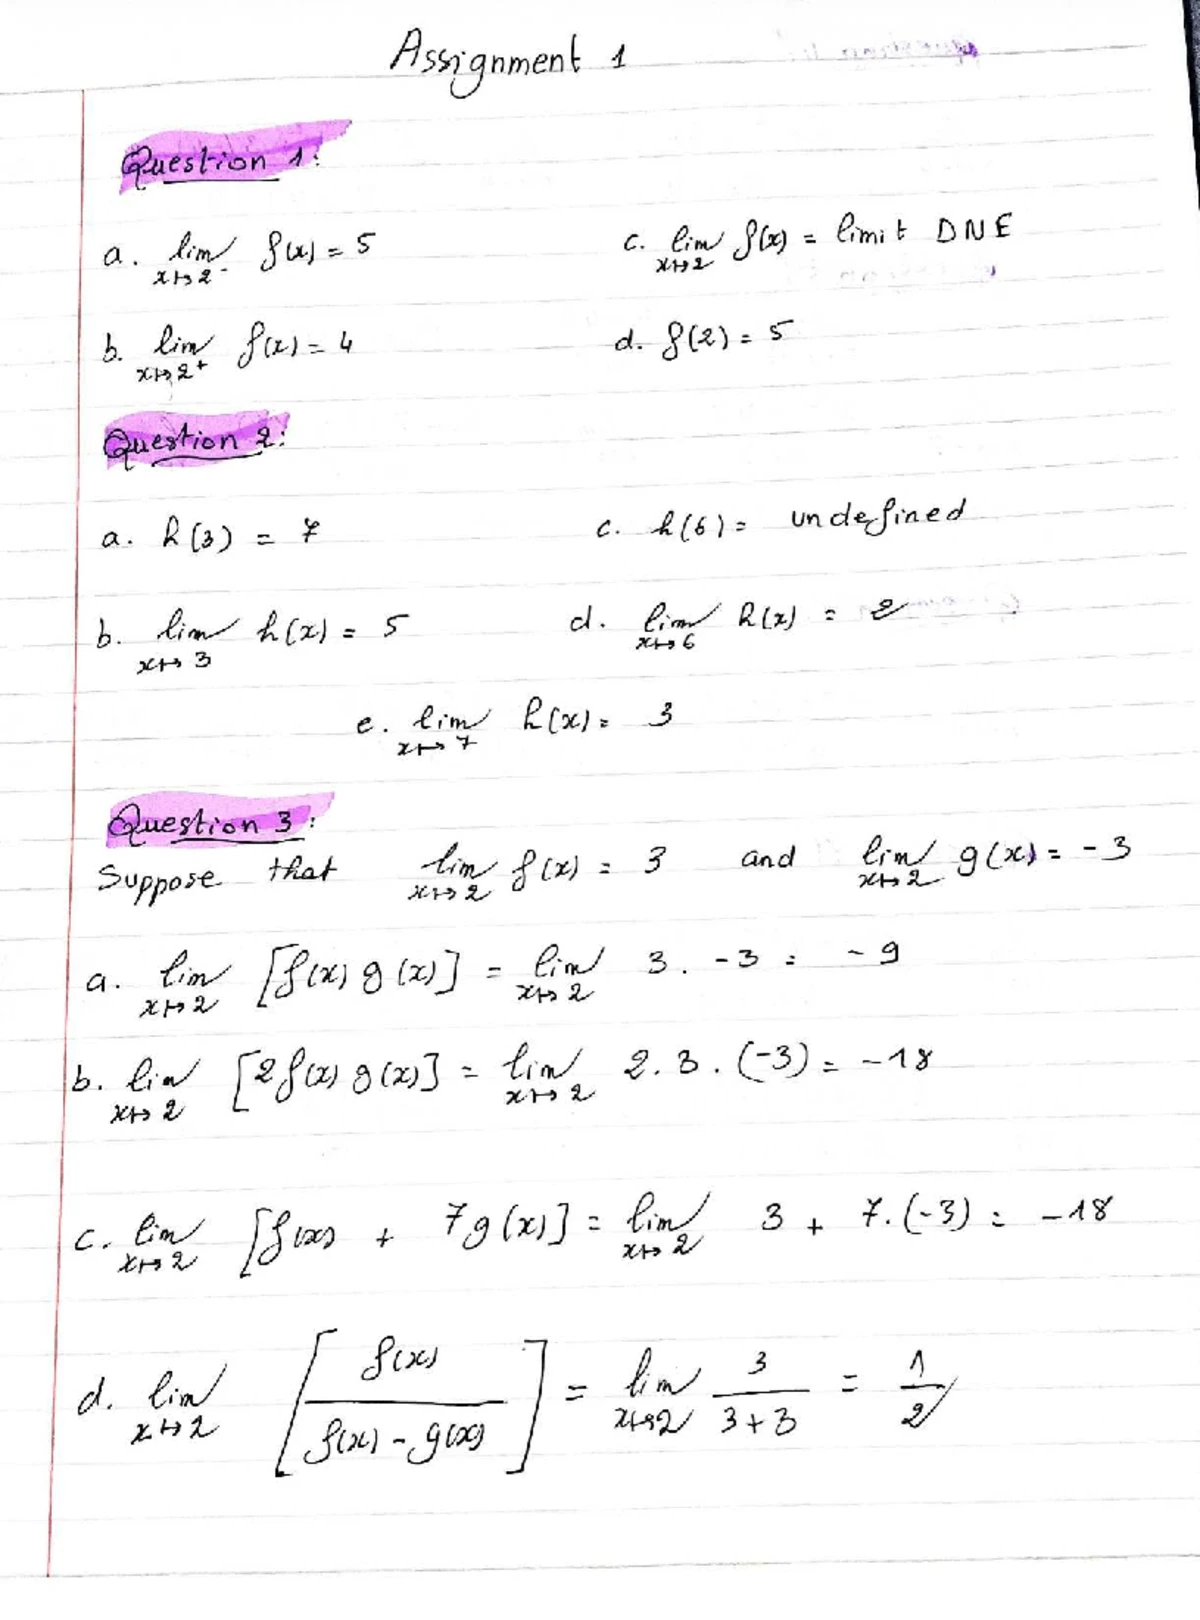 Assignment 1
Question 1:
a. lim x→2⁻ f(x) = 5
c. lim x→2 f(x) = limit DNE
b. lim x→2⁺ f(x) = 4
d. f(2) = 5
Question 2:
a. h(3) = 7
c. h(6) = undefined
b. lim x→3 h(x) = 5
d. lim x→6 h(x) = 2
e. lim x→7 h(x) = 3
Question 3:
Suppose that lim x→2 f(x) = 3 and lim x→2 g(x) = -3
a. lim x→2 [f(x) g(x)] = lim x→2 3 . -3 = -9
b. lim x→2 [2f(x) g(x)] = lim x→2 2.3.(-3) = -18
c. lim x→2 [f(x) + 7g(x)] = lim x→2 3 + 7.(-3) = -18
d. lim x→2 [f(x) / f(x) - g(x)] = lim x→2 3 / 3+3 = 1/2